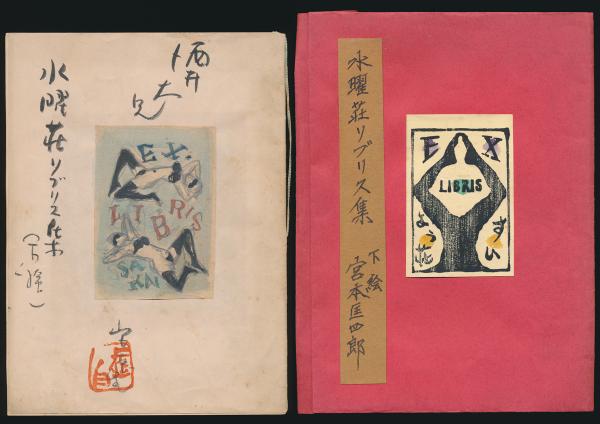 酒井
大兄
水曜荘リブリス集
EX.
LIBRIS
SAKAI
水曜荘リブリス集
下絵
宮本匡四郎
EX
LIBRIS
すい
よう荘